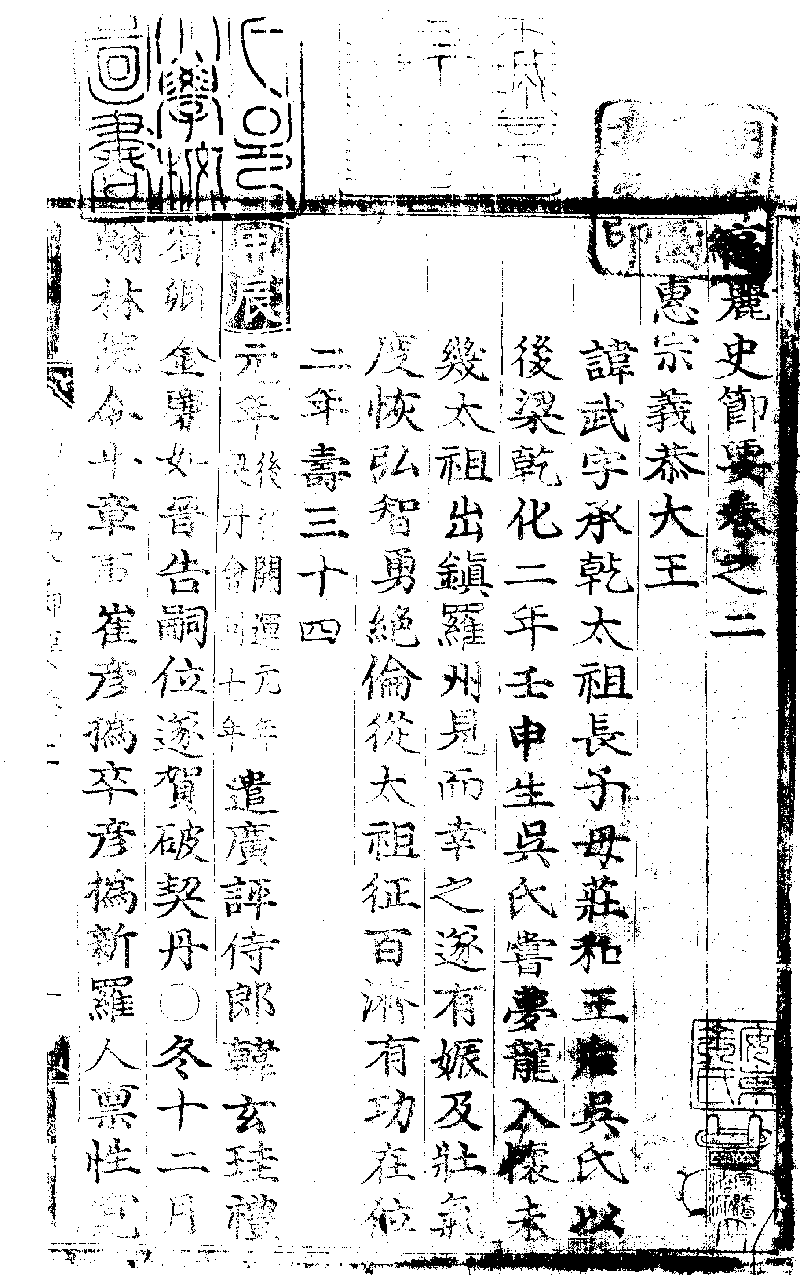 高麗史節要卷之二
惠宗義恭大王
諱武字承乾太祖長子母莊和王后吳氏以
後梁乾化二年壬申生吳氏嘗夢龍入懷未
幾太祖出鎭羅州見而幸之遂有娠及壯氣
度恢弘智勇絶倫從太祖征百濟有功在位
二年壽三十四
甲辰元年後晉開運元年契丹會同七年遣廣評侍郎韓玄珪禮
賓卿金廉如晉告嗣位遂賀破契丹〇冬十二月
翰林院令平章事崔彦撝卒彦撝新羅人禀性寬